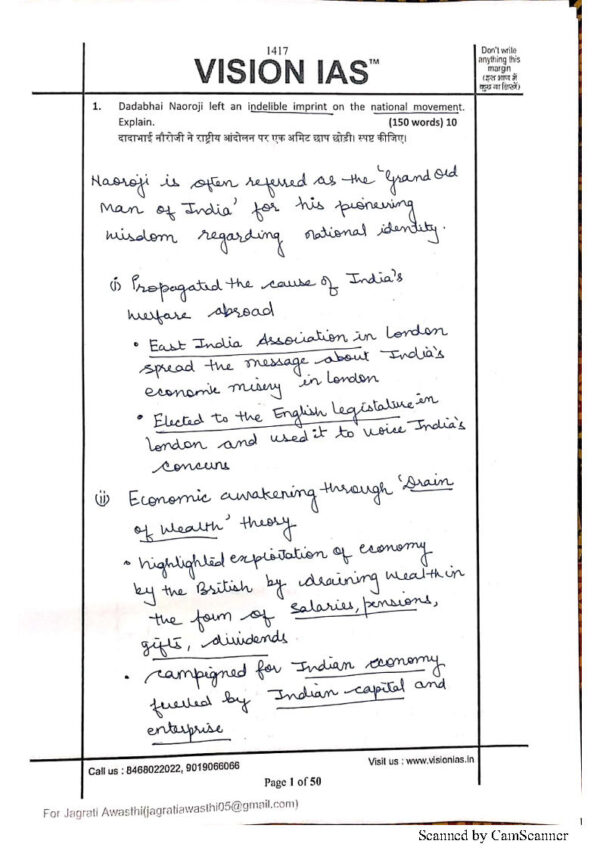 1417
VISION IAS™
Don't write
anything this
margin
(इस भाग में
कुछ ना लिखें)
1. Dadabhai Naoroji left an indelible imprint on the national movement.
Explain. (150 words) 10
दादाभाई नौरोजी ने राष्ट्रीय आंदोलन पर एक अमिट छाप छोड़ी। स्पष्ट कीजिए।
Naoroji is often referred as the 'Grand Old
Man of India' for his pioneering
wisdom regarding national identity.
(i) Propagated the cause of India's
welfare abroad
• East India Association in London
spread the message about India's
economic misery in London
• Elected to the English legislature in
London and used it to voice India's
concerns
(ii) Economic awakening through 'Drain
of Wealth' theory
• highlighted exploitation of economy
by the British by draining wealth in
the form of salaries, pensions,
gifts, dividends
• campigned for Indian economy
fuelled by Indian capital and
enterprise
Call us : 8468022022, 9019066066
Visit us : www.visionias.in
Page 1 of 50
For Jagrati Awasthi(jagratiawasthi05@gmail.com)
Scanned by CamScanner